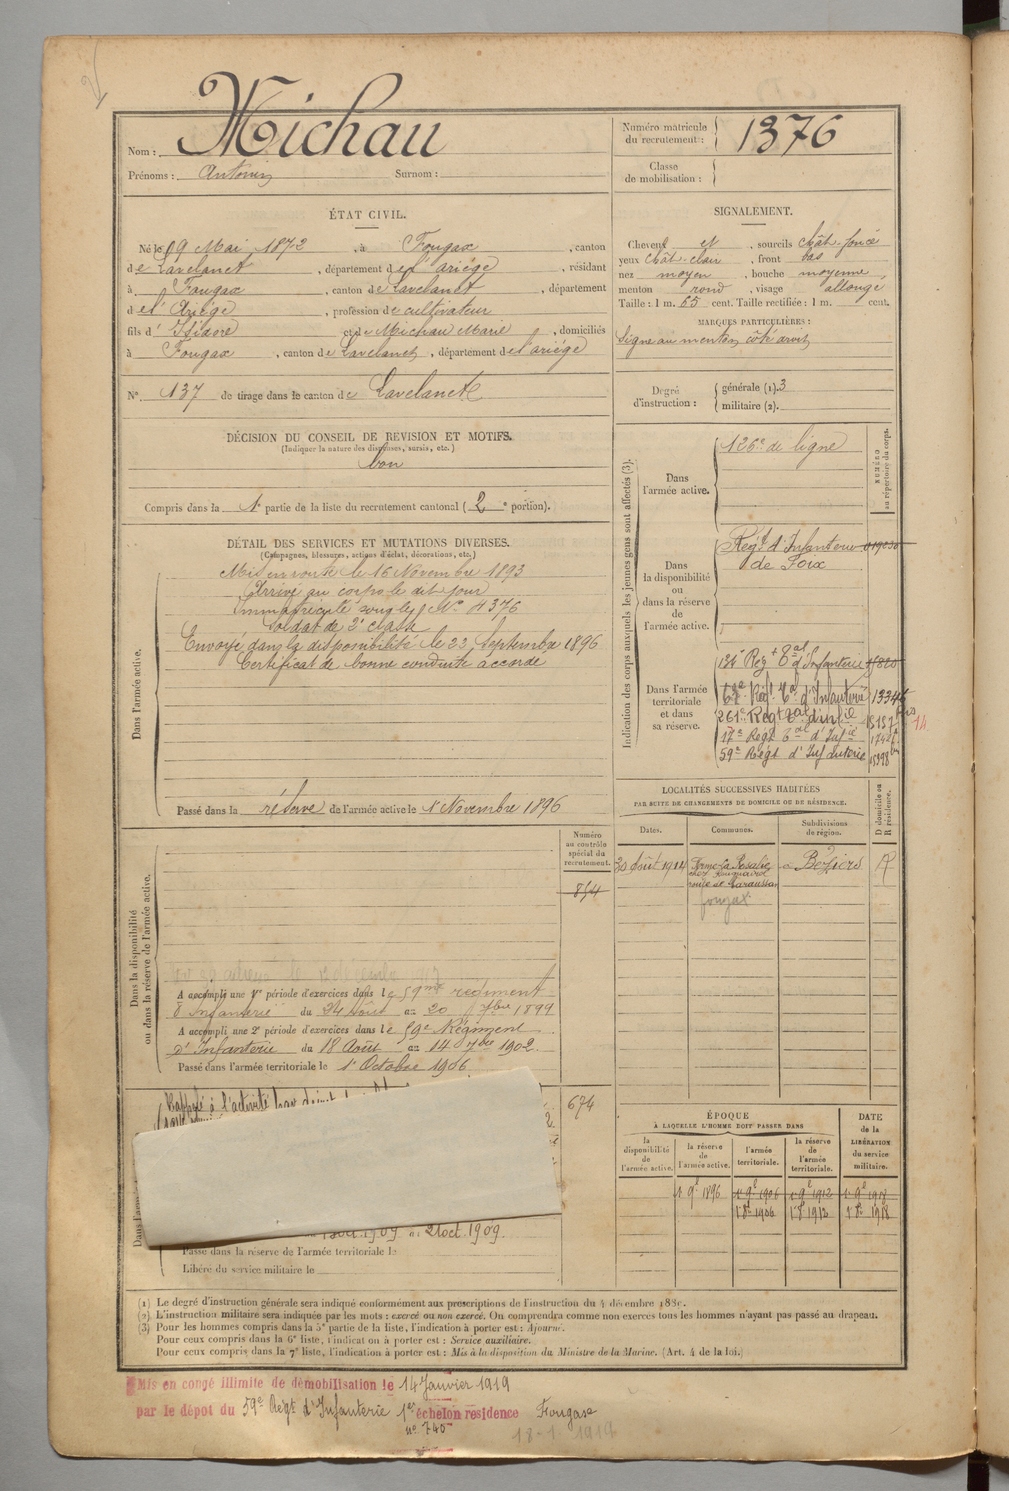 Nom : Michau
Prénoms : Antonin Surnom :
Numéro matricule du recrutement : 1376
Classe de mobilisation :
ÉTAT CIVIL.
Né le 9 Mai 1872, à Fougax, canton
de Lavelanet, département de l'ariège, résidant
à Fougax, canton de Lavelanet, département
de l'Ariège, profession de cultivateur
fils d' Isidore et de Michau Marie, domiciliés
à Fougax, canton de Lavelanet, département de l'ariège
N° 137 de tirage dans le canton de Lavelanet
SIGNALEMENT.
Cheveux et sourcils chât. foncé
yeux chât. clair, front bas
nez moyen, bouche moyenne,
menton rond, visage allongé
Taille : 1 m. 65 cent. Taille rectifiée : 1 m. cent.
MARQUES PARTICULIÈRES :
Signe au menton côté droit
Degré d'instruction : générale (1). 3
militaire (2).
DÉCISION DU CONSEIL DE REVISION ET MOTIFS.
(Indiquer la nature des dispenses, sursis, etc.)
bon
Compris dans la 1e partie de la liste du recrutement cantonal (2e portion).
DÉTAIL DES SERVICES ET MUTATIONS DIVERSES.
(Campagnes, blessures, actions d'éclat, décorations, etc.)
Dans l'armée active.
Mis en route le 16 Novembre 1893
Arrivé au corps le dit jour
Immatriculé sous le N° 4376
Soldat de 2e classe
Envoyé dans la disponibilité le 23 Septembre 1896
Certificat de bonne conduite accordé
Passé dans la réserve de l'armée active le 1 Novembre 1896
Indication des corps auxquels les jeunes gens sont affectés (3).
NUMÉRO au répertoire du corps.
Dans l'armée active.
126e de ligne
Dans la disponibilité ou dans la réserve de l'armée active.
Régt d'Infanterie
de Foix
Dans l'armée territoriale et dans sa réserve.
134e Régt Tal d'Infanterie
67e Régt Tal d'Infanterie
261e Régt Tal d'Infie
17e Régt Tal d'Infie
59e Régt d'Infanterie
LOCALITÉS SUCCESSIVES HABITÉES
PAR SUITE DE CHANGEMENTS DE DOMICILE OU DE RÉSIDENCE.
Dates.
Communes.
Subdivisions de région.
D domicile ou R résidence.
Août 1914
Ferme La Rosalie
route de Maraussan
Béziers
R
fougax
Numéro au contrôle spécial du recrutement.
854
Dans la disponibilité ou dans la réserve de l'armée active.
A accompli une 1re période d'exercices dans le 59me régiment
d'Infanterie du 24 Août au 20 7bre 1899
A accompli une 2e période d'exercices dans le 59e Régiment
d'Infanterie du 18 Août au 14 7bre 1902.
Passé dans l'armée territoriale le 1er Octobre 1906
Rappelé à l'activité par décret
674
oct. 1909 au 21 oct. 1909.
Passé dans la réserve de l'armée territoriale le
Libéré du service militaire le
ÉPOQUE
À LAQUELLE L'HOMME DOIT PASSER DANS
la disponibilité de l'armée active.
la réserve de l'armée active.
l'armée territoriale.
la réserve de l'armée territoriale.
DATE de la LIBÉRATION du service militaire.
1r 9b 1896 1r 9b 1906 1r 9b 1912 1r 9b 1918
1r 8b 1906 1r 8b 1912 1r 8b 1918
(1) Le degré d'instruction générale sera indiqué conformément aux prescriptions de l'instruction du 4 décembre 1889.
(2) L'instruction militaire sera indiquée par les mots : exercé ou non exercé. On comprendra comme non exercés tous les hommes n'ayant pas passé au drapeau.
(3) Pour les hommes compris dans la 5e partie de la liste, l'indication à porter est : Ajourné.
Pour ceux compris dans la 6e liste, l'indication à porter est : Service auxiliaire.
Pour ceux compris dans la 7e liste, l'indication à porter est : Mis à la disposition du Ministre de la Marine. (Art. 4 de la loi.)
Mis en congé illimité de démobilisation le 14 Janvier 1919
par le dépôt du 59e Régt d'Infanterie 1er échelon résidence Fougax
n° 740
18-1 1919